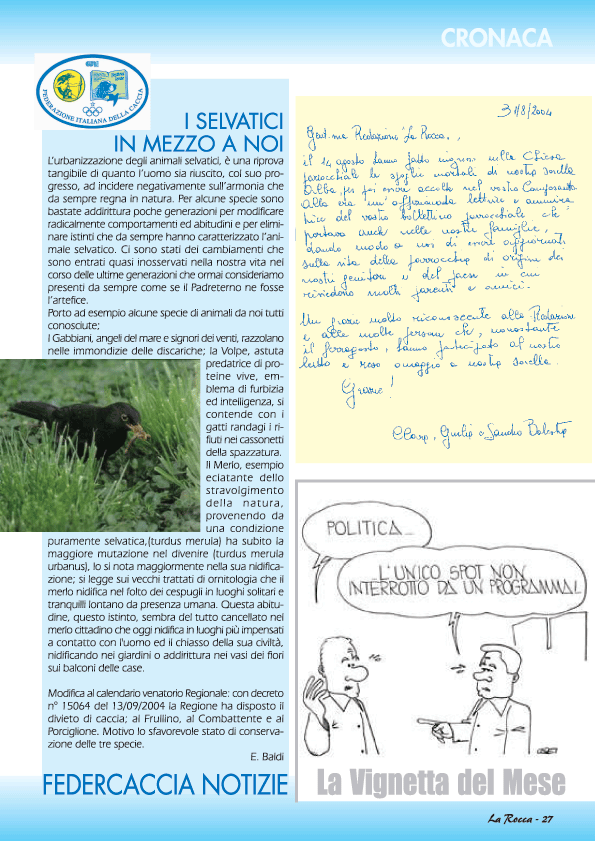 CRONACA
FEDERAZIONE ITALIANA DELLA CACCIA
I SELVATICI
IN MEZZO A NOI
L'urbanizzazione degli animali selvatici, è una riprova
tangibile di quanto l'uomo sia riuscito, col suo pro-
gresso, ad incidere negativamente sull'armonia che
da sempre regna in natura. Per alcune specie sono
bastate addirittura poche generazioni per modificare
radicalmente comportamenti ed abitudini e per elimi-
nare istinti che da sempre hanno caratterizzato l'ani-
male selvatico. Ci sono stati dei cambiamenti che
sono entrati quasi inosservati nella nostra vita nel
corso delle ultime generazioni che ormai consideriamo
presenti da sempre come se il Padreterno ne fosse
l'artefice.
Porto ad esempio alcune specie di animali da noi tutti
conosciute;
I Gabbiani, angeli del mare e signori dei venti, razzolano
nelle immondizie delle discariche; la Volpe, astuta
predatrice di pro-
teine vive, em-
blema di furbizia
ed intelligenza, si
contende con i
gatti randagi i ri-
fiuti nei cassonetti
della spazzatura.
Il Merlo, esempio
eclatante dello
stravolgimento
della natura,
provenendo da
una condizione
puramente selvatica,(turdus merula) ha subito la
maggiore mutazione nel divenire (turdus merula
urbanus), lo si nota maggiormente nella sua nidifica-
zione; si legge sui vecchi trattati di ornitologia che il
merlo nidifica nel folto dei cespugli in luoghi solitari e
tranquilli lontano da presenza umana. Questa abitu-
dine, questo istinto, sembra del tutto cancellato nel
merlo cittadino che oggi nidifica in luoghi più impensati
a contatto con l'uomo ed il chiasso della sua civiltà,
nidificando nei giardini o addirittura nei vasi dei fiori
sui balconi delle case.
Modifica al calendario venatorio Regionale: con decreto
n° 15064 del 13/09/2004 la Regione ha disposto il
divieto di caccia; al Frullino, al Combattente e al
Porciglione. Motivo lo sfavorevole stato di conserva-
zione delle tre specie.
E. Baldi
FEDERCACCIA NOTIZIE
31/8/2004
Gent.ma Redazione "La Rocca",
il 14 agosto hanno fatto ingresso nella Chiesa
parrocchiale le spoglie mortali di nostra sorella
Alba per poi essere accolte nel vostro Camposanto
Alba era un'appassionata lettrice e ammira
trice del vostro bollettino parrocchiale che
portava anche nelle nostre famiglie,
dando modo a noi di essere aggiornati
sulla vita della parrocchia di origine dei
nostri genitori e del paese in cui
risiedono molti parenti e amici.
Un grazie molto riconoscente alla Redazione
e alle molte persone che, nonostante
il ferragosto, hanno partecipato al nostro
lutto e reso omaggio a nostra sorella.
Grazie!
Giulia e Sandro
POLITICA...
...L'UNICO SPOT NON
INTERROTTO DA UN PROGRAMMA!
La Vignetta del Mese
La Rocca - 27